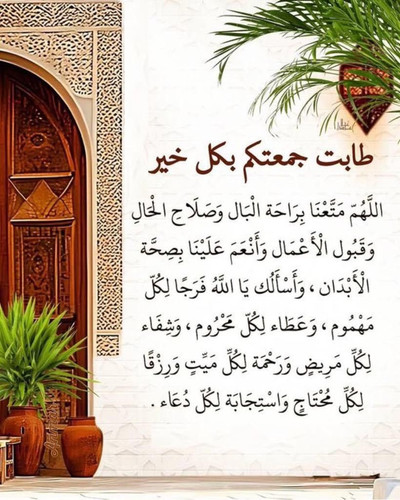 طابت جمعتكم بكل خير
اللَّهُمّ مَتَّعْنَا بِرَاحَة الْبَال وَصَلَاح الْحَال
وَقَبُول الْأَعْمَال وَأَنْعَمَ عَلَيْنَا بِصِحَّة
الْأَبْدَان ، وَأَسْأَلُك يَا اللَّهُ فَرَجًا لِكُلّ
مَهْمُوم ، وَعَطَاء لِكُلّ مَحْرُوم ، وَشِفَاء
لِكُلّ مَرِيضٍ وَرَحْمَة لِكُلّ مَيِّتٍ وَرِزْقًا
لِكُلّ مُحْتَاجٍ وَاسْتِجَابَة لِكُلّ دُعَاء .